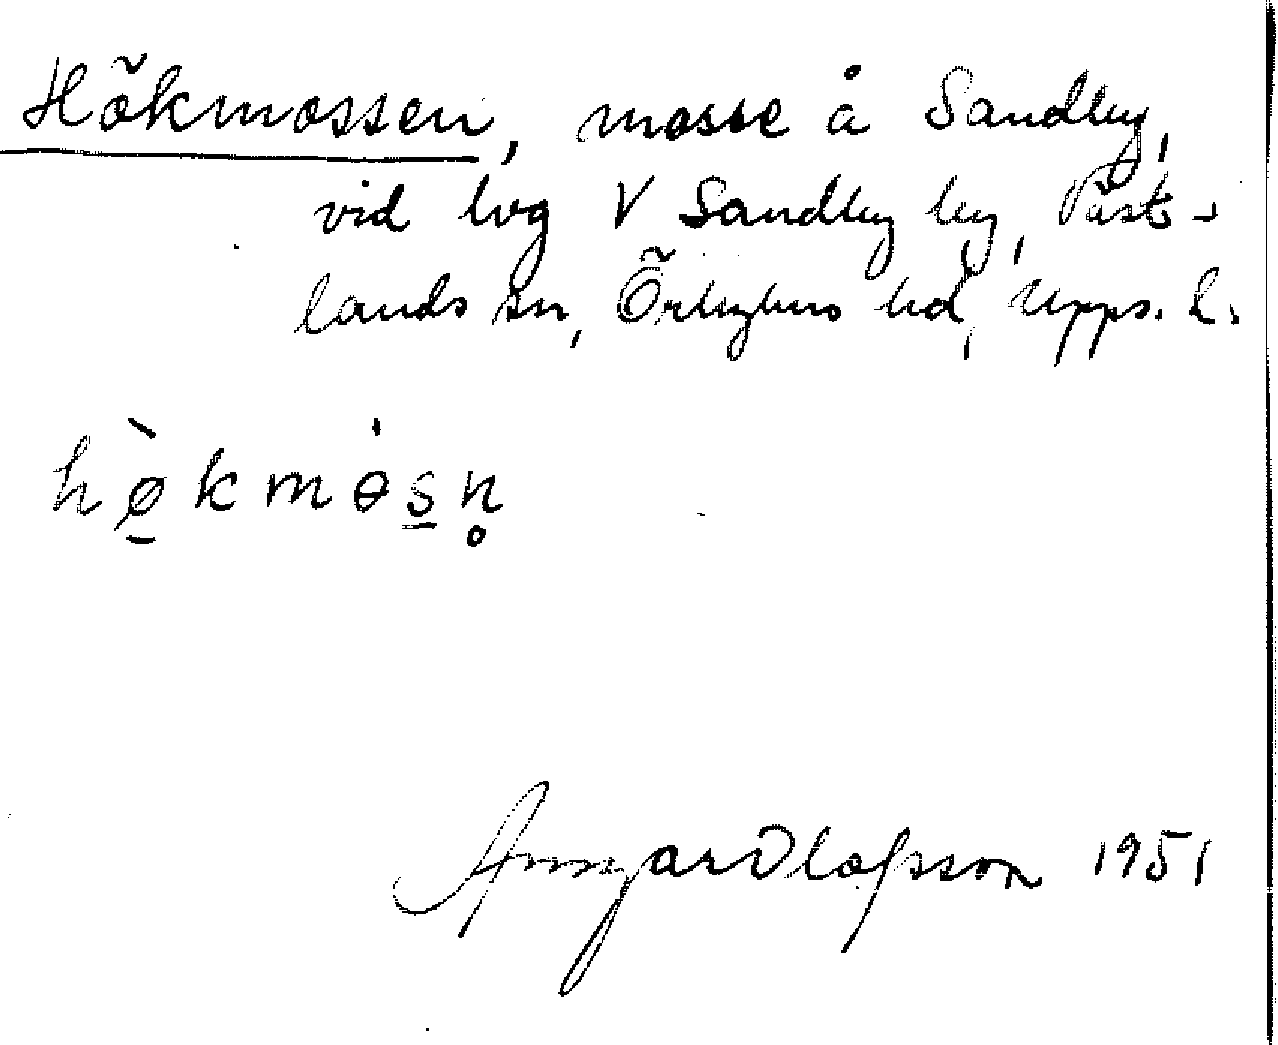 Hökmossen, mosse å Sandby,
vid lvg V Sandby by, Väst-
lands sn, Örbyhus hd, Upps. l.
hø̀kmòsn̥
Olofsson 1951